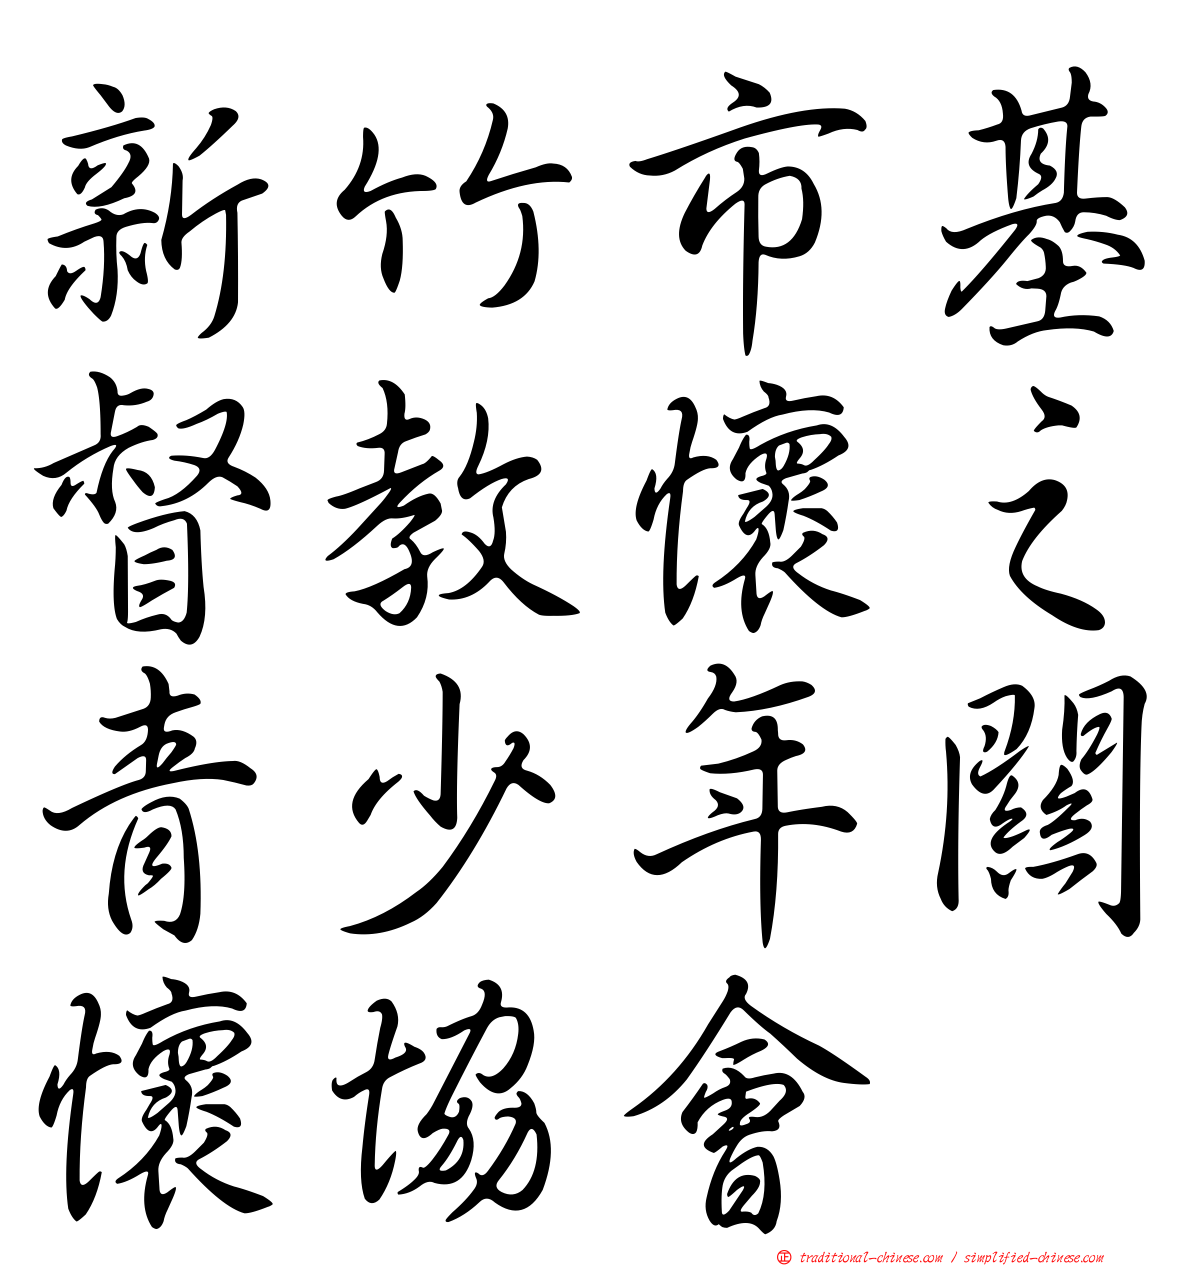 新竹市基
督教懷之
青少年關
懷協會
㊣ traditional-chinese.com / simplified-chinese.com